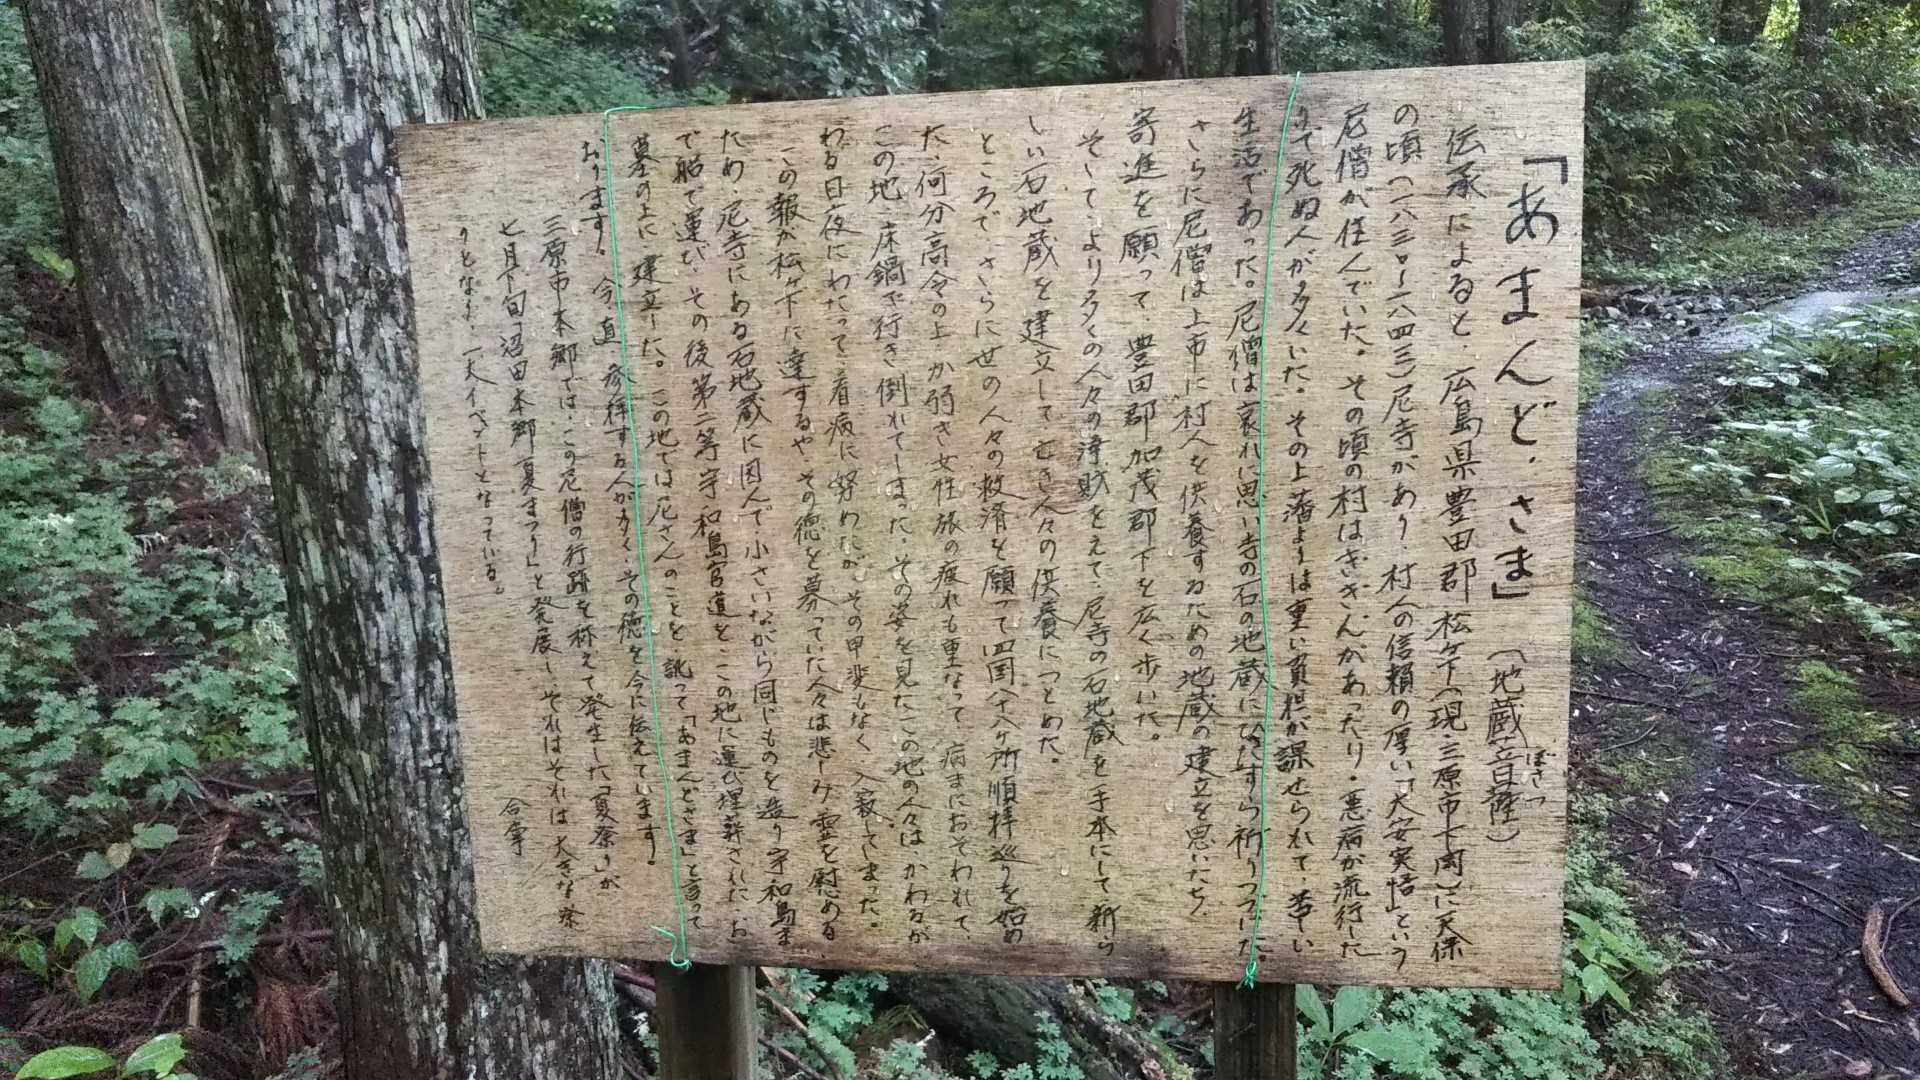 「あまんど・さま」（地蔵菩薩）
ぼさつ
伝承によると、広島県豊田郡松ヶ下（現・三原市下北方）に天保
の頃（一八三〇〜一八四三）尼寺があり、村人の信頼の厚い「大安実悟」という
尼僧が住んでいた。その頃の村はききんがあったり・悪病が流行した
りで死ぬ人が多くいた。その上藩よりは重い負担が課せられて、苦しい
生活であった。尼僧は哀れに思い寺の石の地蔵にひたすら祈りつづけた。
さらに尼僧は上市に村人を供養するための地蔵の建立を思いたち、
寄進を願って、豊田郡加茂郡下を広く歩いた。
そして、より多くの人々の浄財をえて、尼寺の石地蔵を手本にして新ら
しい石地蔵を建立して亡き人々の供養につとめた。
ところで、さらに世の人々の救済を願って四国八十八ヶ所順拝巡りを始め
た、何分高令の上、か弱き女性旅の疲れも重なって、病まにおそわれて、
この地、床鍋で行き倒れてしまった。その姿を見たこの地の人々は、かわるが
わる日夜にわたって看病に努めたが、その甲斐もなく入寂してしまった。
この報が松ヶ下に達するや、その徳を慕っていた人々は悲しみ霊を慰める
ため、尼寺にある石地蔵に因んで、小さいながら同じものを造り宇和島ま
で船で運び、その後第二等宇和島官道を、この地に運び埋葬された、お
墓の上に建立した。この地では尼さんのことを、訛って「あまんどさま」と言って
おります。今直、参拝する人が多く、その徳を今に伝えています。
三原市本郷では、この尼僧の行跡を称えて発生した「夏祭り」が
七月下旬「沼田本郷夏まつり」と発展し、それはそれは大きな祭
りとなり、一大イベントとなっている。
合掌